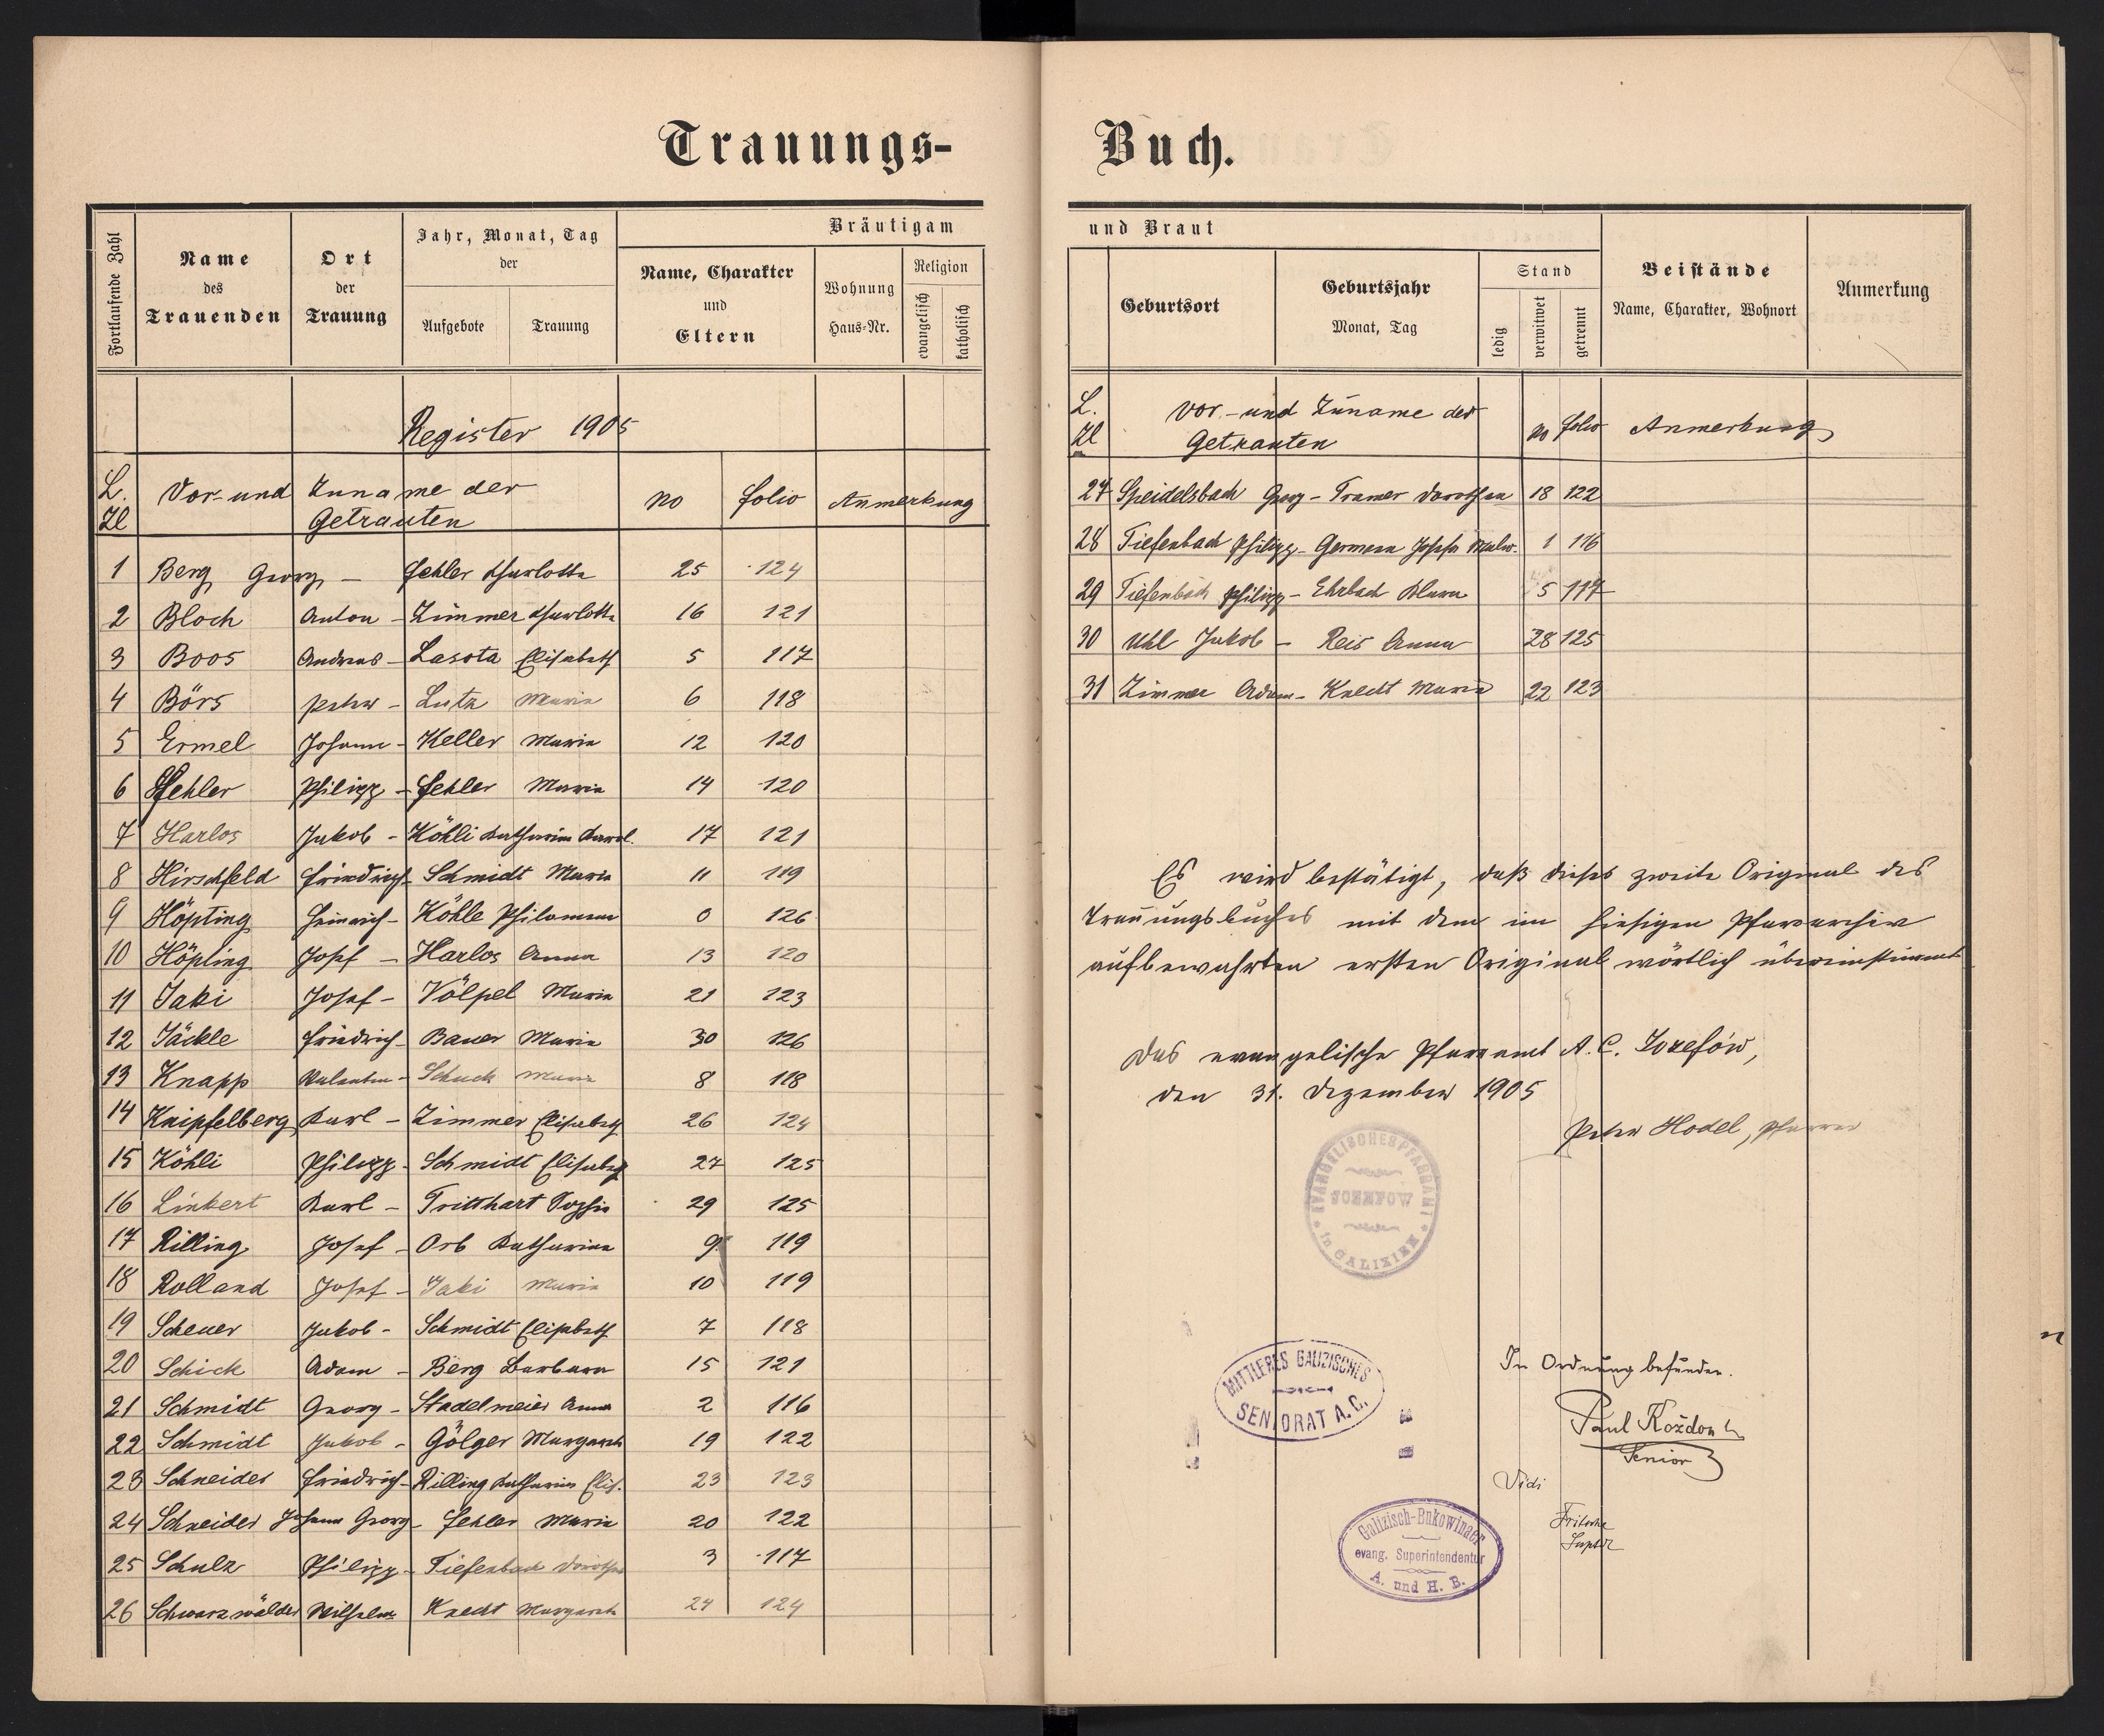 Trauungs-
Fortlaufende Zahl
Name
des
Trauenden
Ort
der
Trauung
Jahr, Monat, Tag
der
Aufgebote
Trauung
Bräutigam
Name, Charakter
und
Eltern
Wohnung
Haus-Nr.
Religion
evangelisch
katholisch
Register 1905
L. Zl Vor- und Zuname der Getrauten No folio Anmerkung
1 Berg Georg - Fehler Charlotte 25 124
2 Bloch Anton - Zimmer Charlotte 16 121
3 Boos Andreas - Lasota Elisabeth 5 117
4 Börs Peter - Lutz Maria 6 118
5 Ermel Johann - Keller Maria 12 120
6 Fehler Philipp - Fehler Maria 14 120
7 Harlos Jakob - Köhli Katharina Karol. 17 121
8 Hirschfeld Friedrich - Schmidt Maria 11 119
9 Höpting Heinrich - Köhle Philomena 0 126
10 Höpling Josef - Harlos Anna 13 120
11 Jaki Josef - Völpel Maria 21 123
12 Jäckle Friedrich - Bauer Maria 30 126
13 Knapp Valentin - Schuck Maria 8 118
14 Knipfelberg Karl - Zimmer Elisabeth 26 124
15 Köhli Philipp - Schmidt Elisabeth 27 125
16 Linkert Karl - Tritthart Sophie 29 125
17 Rilling Josef - Orb Katharina 9 119
18 Rolland Josef - Jaki Maria 10 119
19 Scheuer Jakob - Schmidt Elisabeth 7 118
20 Schick Adam - Berg Barbara 15 121
21 Schmidt Georg - Stadelmeier Anna 2 116
22 Schmidt Jakob - Gölger Margareta 19 122
23 Schneider Friedrich - Rilling Katharina Elis. 23 123
24 Schneider Johann Georg - Fehler Maria 20 122
25 Schulz Philipp - Tiefenbach Dorothea 3 117
26 Schwarzwälder Wilhelm Knecht Margareta 24 124
Buch.
und Braut
Geburtsort
Geburtsjahr
Monat, Tag
Stand
ledig
verwitwet
getrennt
Beistände
Name, Charakter, Wohnort
Anmerkung
L. Zl Vor- und Zuname der Getrauten No folio Anmerkung
27 Speidelsbach Georg - Tramer Dorothea 18 122
28 Tiefenbach Philipp - Germann Josefa Malw. 1 116
29 Tiefenbach Philipp - Ehrbach Klara 5 117
30 Uhl Jakob - Reis Anna 28 125
31 Zimmer Adam - Knecht Maria 22 123
Es wird bestätigt, daß dieses zweite Original des
Trauungsbuches mit dem im hiesigen Pfarrarchiv
aufbewahrten ersten Original wörtlich übereinstimmt
Das evangelische Pfarramt A. C. Jozefów,
den 31. Dezember 1905
Peter Hodel, Pfarrer
EVANGELISCHES PFARRAMT
JOZEFOW
in GALIZIEN
MITTLERES GALIZISCHES
SENIORAT A. C.
In Ordnung befunden.
Paul Kożdoń
Senior
Vidi
Fritsche
Suptdt
Galizisch-Bukowinaer
evang. Superintendentur
A. und H. B.